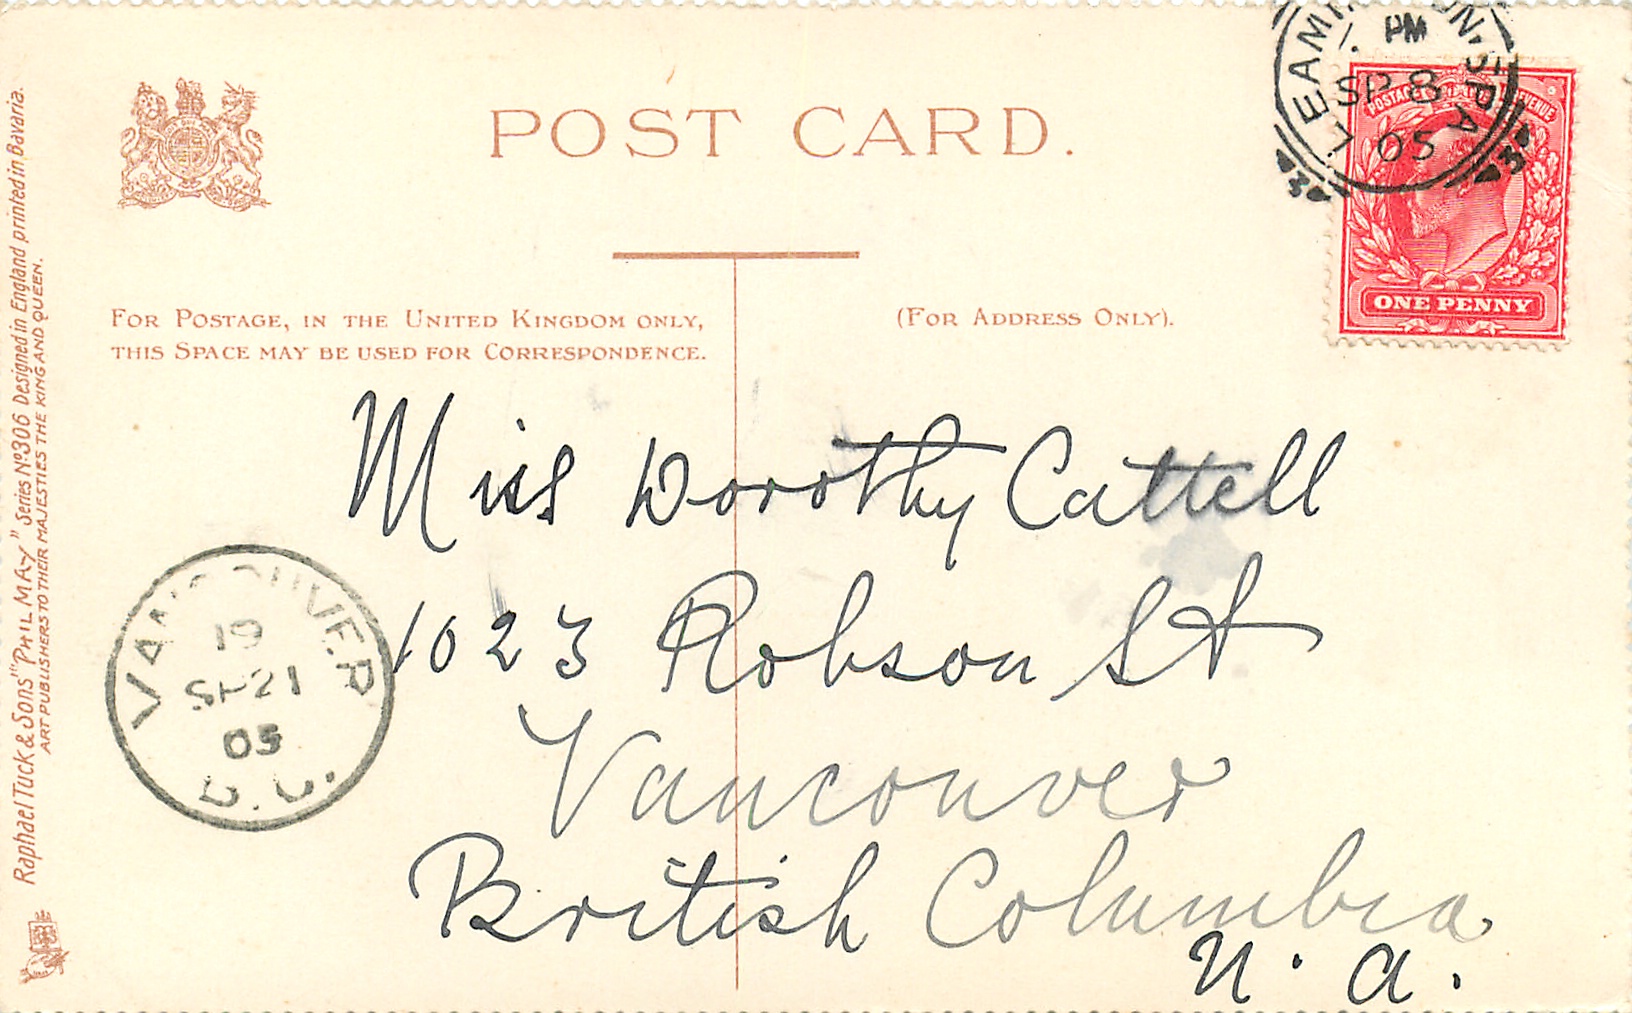 POST CARD.
FOR POSTAGE, IN THE UNITED KINGDOM ONLY,
THIS SPACE MAY BE USED FOR CORRESPONDENCE.
(FOR ADDRESS ONLY).
LEAMINGTON. SPA
PM
SP 8
05
3 3
POSTAGE REVENUE
ONE PENNY
Miss Dorothy Cattell
1023 Robson St
Vancouver
British Columbia
N. A.
VANCOUVER
19
SP 21
05
B.C.
Raphael Tuck & Sons' "PHIL MAY" Series No. 306 Designed in England printed in Bavaria.
ART PUBLISHERS TO THEIR MAJESTIES THE KING AND QUEEN.